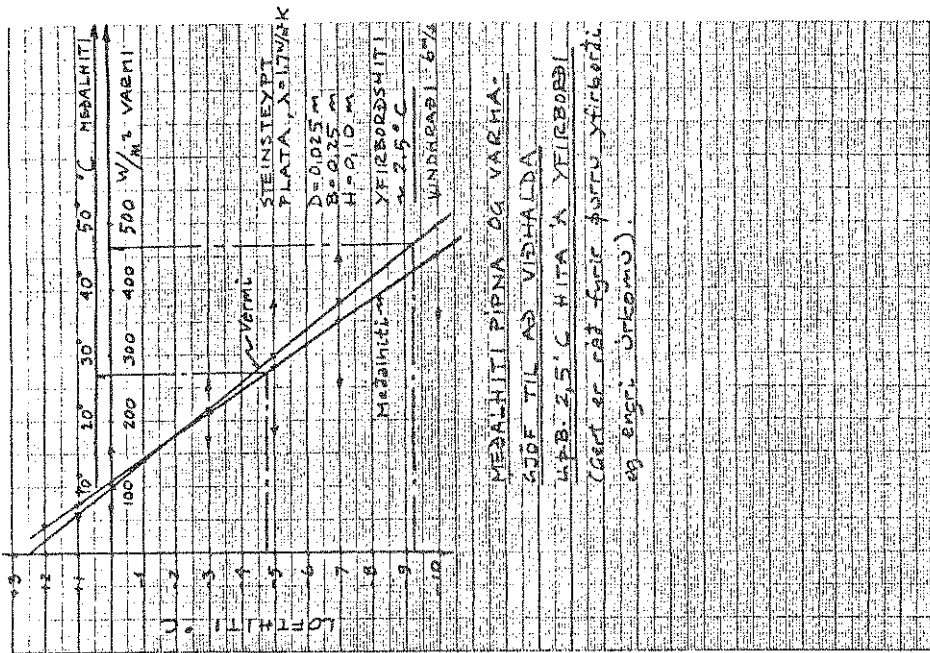 50° °C MEÐALHITI
10° 20° 30° 40°
100 200 300 400 500 W/m² VARMI
LOFTHITI °C
+3 +2 +1 -1 -2 -3 -4 -5 -6 -7 -8 -9 -10
Varmi
Meðalhiti
STEINSTEYPT
PLATA, λ=1,7W/m°K
D=0,025 m
B=0,25 m
H=0,10 m
YFIRBORÐSHITI
~ 2,5°C
VINDHRAÐI 6 m/s
MEÐALHITI PÍPNA OG VARMA-
GJÖF TIL AÐ VIÐHALDA
U.Þ.B. 2,5°C HITA Á YFIRBORÐI
(Gert er ráð fyrir þurru yfirborði
og engri úrkomu).